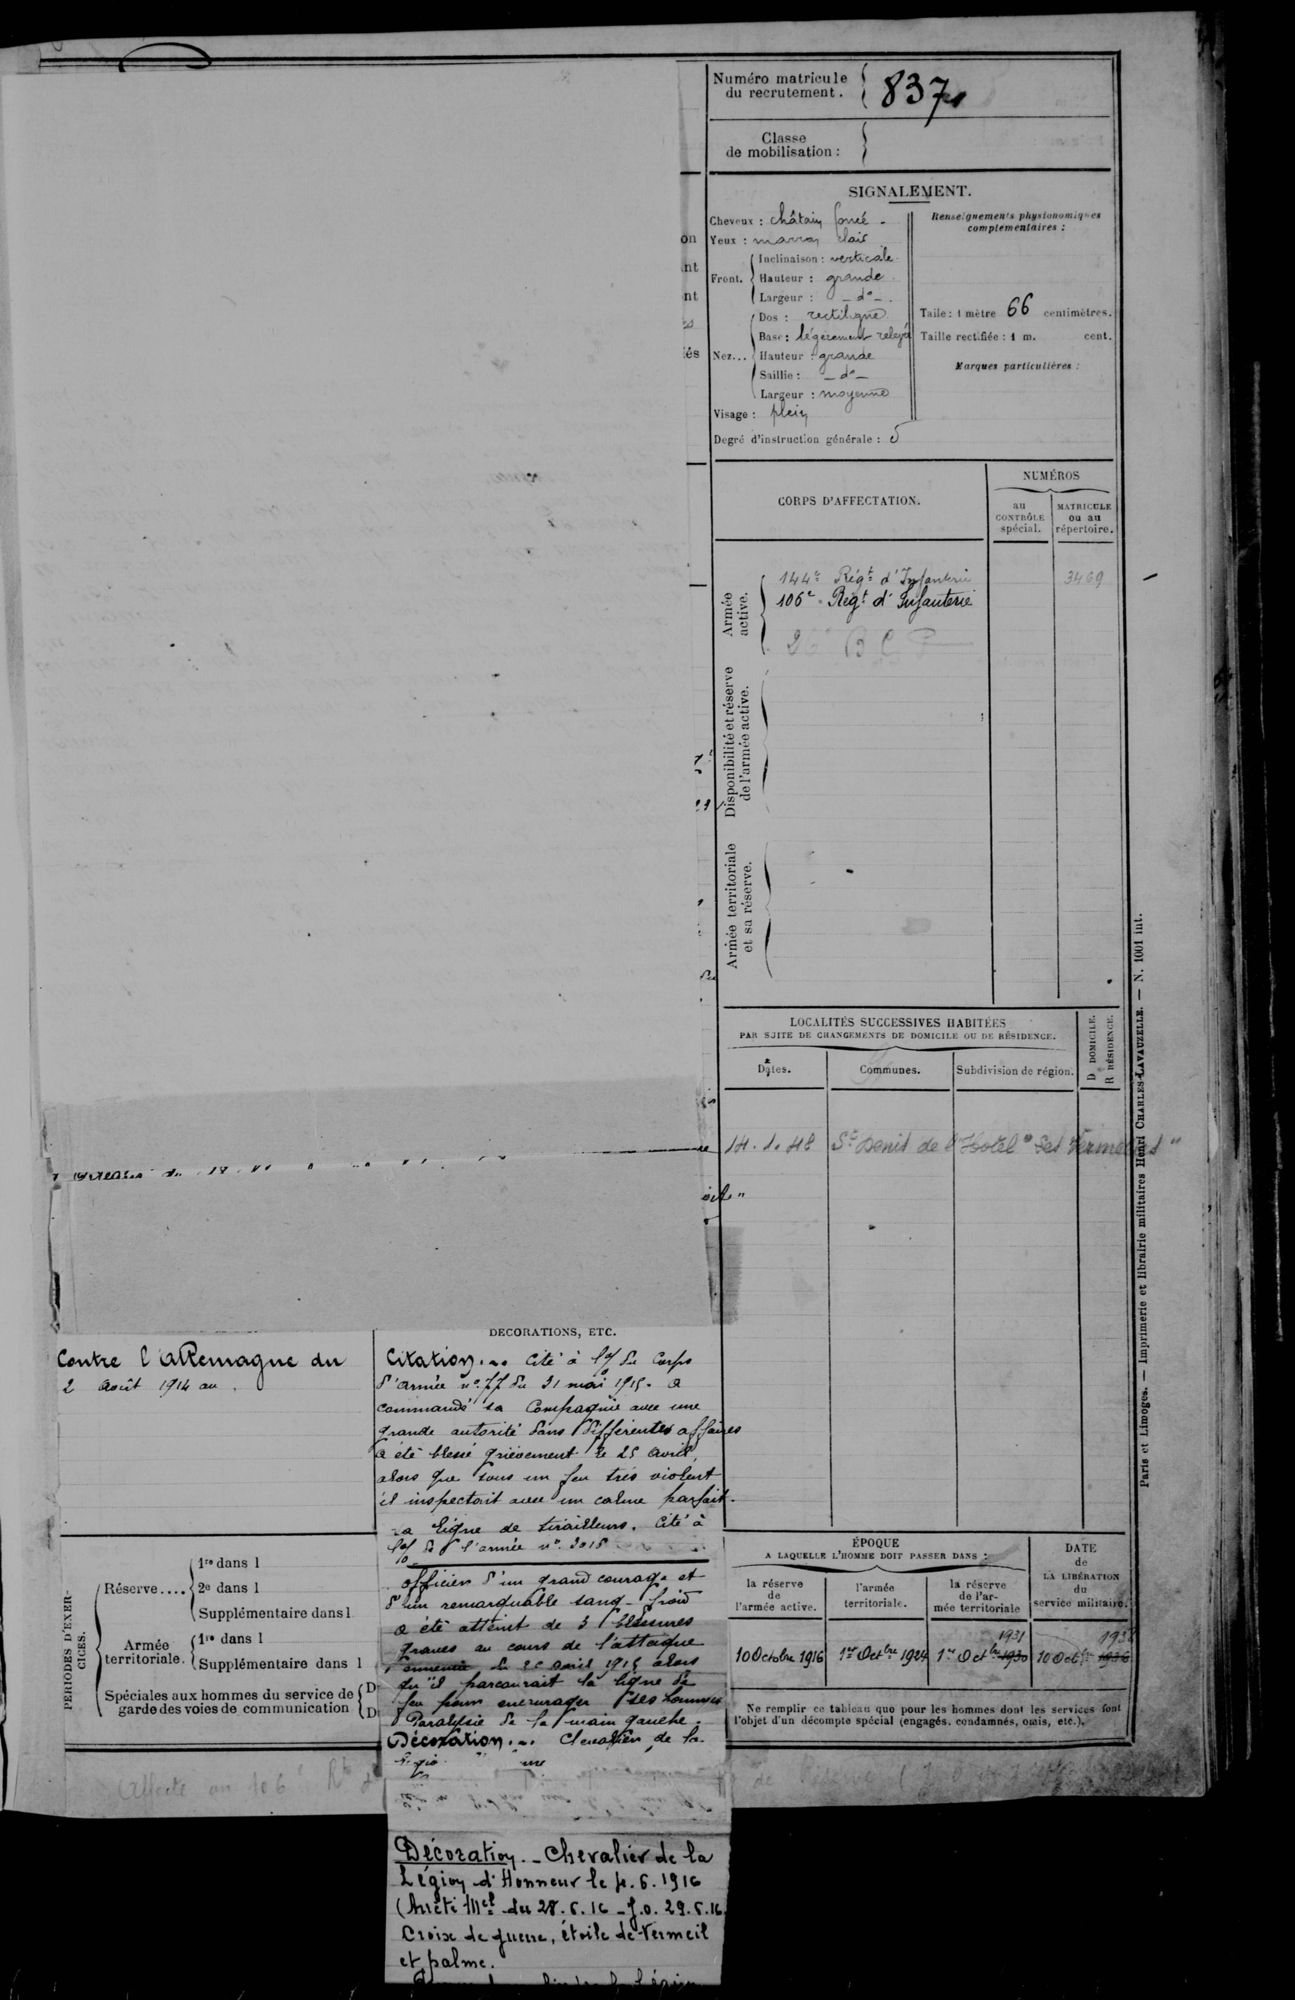 Numéro matricule
du recrutement.
837
Classe
de mobilisation :
SIGNALEMENT.
Cheveux : châtain foncé
Yeux : marron clair
Front.
Inclinaison : verticale
Hauteur : grande
Largeur : - do -
Nez...
Dos : rectiligne
Base : légèrement relevé
Hauteur : grande
Saillie : - do -
Largeur : moyenne
Visage : plein
Degré d'instruction générale : 5
Renseignements physionomiques
complémentaires :
Taille : 1 mètre 66 centimètres.
Taille rectifiée : 1 m. cent.
Marques particulières :
CORPS D'AFFECTATION.
NUMÉROS
au
CONTRÔLE
spécial.
MATRICULE
ou au
répertoire.
Armée
active.
144e Régt d'Infanterie 3469
106e Régt d'Infanterie
26 B C P
Disponibilité et réserve
de l'armée active.
Armée territoriale
et sa réserve.
LOCALITÉS SUCCESSIVES HABITÉES
PAR SUITE DE CHANGEMENTS DE DOMICILE OU DE RÉSIDENCE.
D DOMICILE.
R RÉSIDENCE.
Dates.
Communes.
Subdivision de région.
14.1.48 St Denis de l'Hotel
DÉCORATIONS, ETC.
Contre l'Allemagne du
2 août 1914 au
Citation. Cité à l'o/ du Corps
d'armée no 77 du 31 mai 1915. A
commandé sa Compagnie avec une
grande autorité dans différentes affaires
a été blessé grièvement le 25 avril,
alors que sous un feu très violent
il inspectait avec un calme parfait
la ligne de tirailleurs. Cité à
l'o/ de l'armée no 3015
officier d'un grand courage et
d'un remarquable sang-froid
a été atteint de 3 blessures
graves au cours de l'attaque
ennemie du 25 avril 1915 alors
qu'il parcourait la ligne de
feu pour encourager ses hommes
Paralysie de la main gauche.
Décoration... Chevalier de la
PÉRIODES D'EXER-
CICES.
Réserve....
1re dans l
2e dans l
Supplémentaire dans l
Armée
territoriale.
1re dans l
Supplémentaire dans l
Spéciales aux hommes du service de
garde des voies de communication
D
D
ÉPOQUE
A LAQUELLE L'HOMME DOIT PASSER DANS :
la réserve
de
l'armée active.
l'armée
territoriale.
la réserve
de l'ar-
mée territoriale
DATE
de
LA LIBÉRATION
du
service militaire.
1931
10 Octobre 1916
1er Octbre 1924
1er Octbre 1930
10 Octbre 1936
Ne remplir ce tableau que pour les hommes dont les services font
l'objet d'un décompte spécial (engagés, condamnés, omis, etc.).
Affecté au 106e
Décoration. - Chevalier de la
Légion d'Honneur le
.6.1916
(Arrêté Mel du 28.6.16 - J.O. 29.6.16.
Croix de guerre, étoile de Vermeil
et palme.
Paris et Limoges. — Imprimerie et librairie militaires Henri CHARLES-LAVAUZELLE. — N. 1001 int.